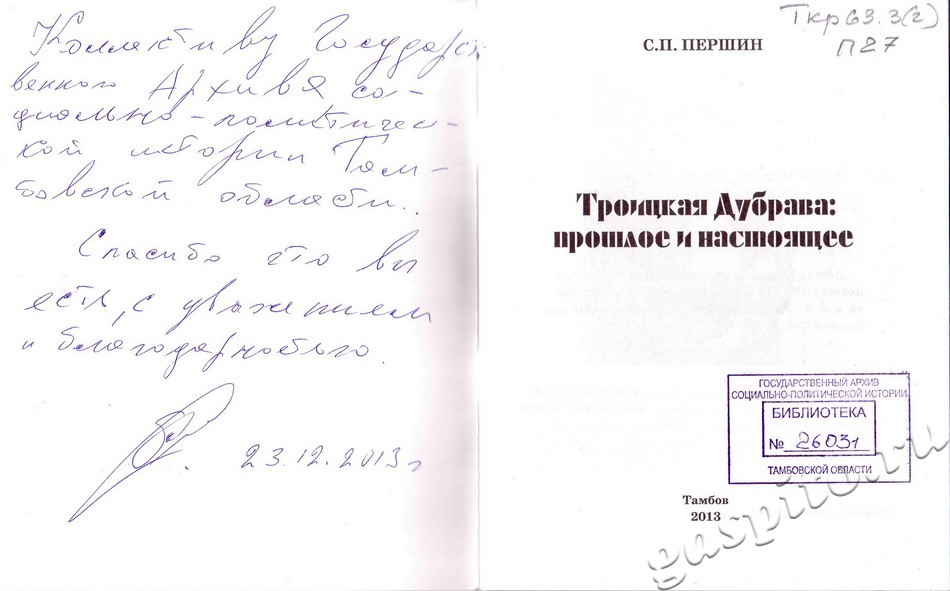 Коллективу Государст-
венного Архива со-
циально-политичес-
кой истории Там-
бовской области.
Спасибо что вы
есть, с уважением
и благодарностью.
23.12.2013 г
Ткр63.3(2)
П27
С.П. ПЕРШИН
Троицкая Дубрава:
прошлое и настоящее
ГОСУДАРСТВЕННЫЙ АРХИВ
СОЦИАЛЬНО-ПОЛИТИЧЕСКОЙ ИСТОРИИ
БИБЛИОТЕКА
№ 26031
ТАМБОВСКОЙ ОБЛАСТИ
Тамбов
2013
gaspito.ru